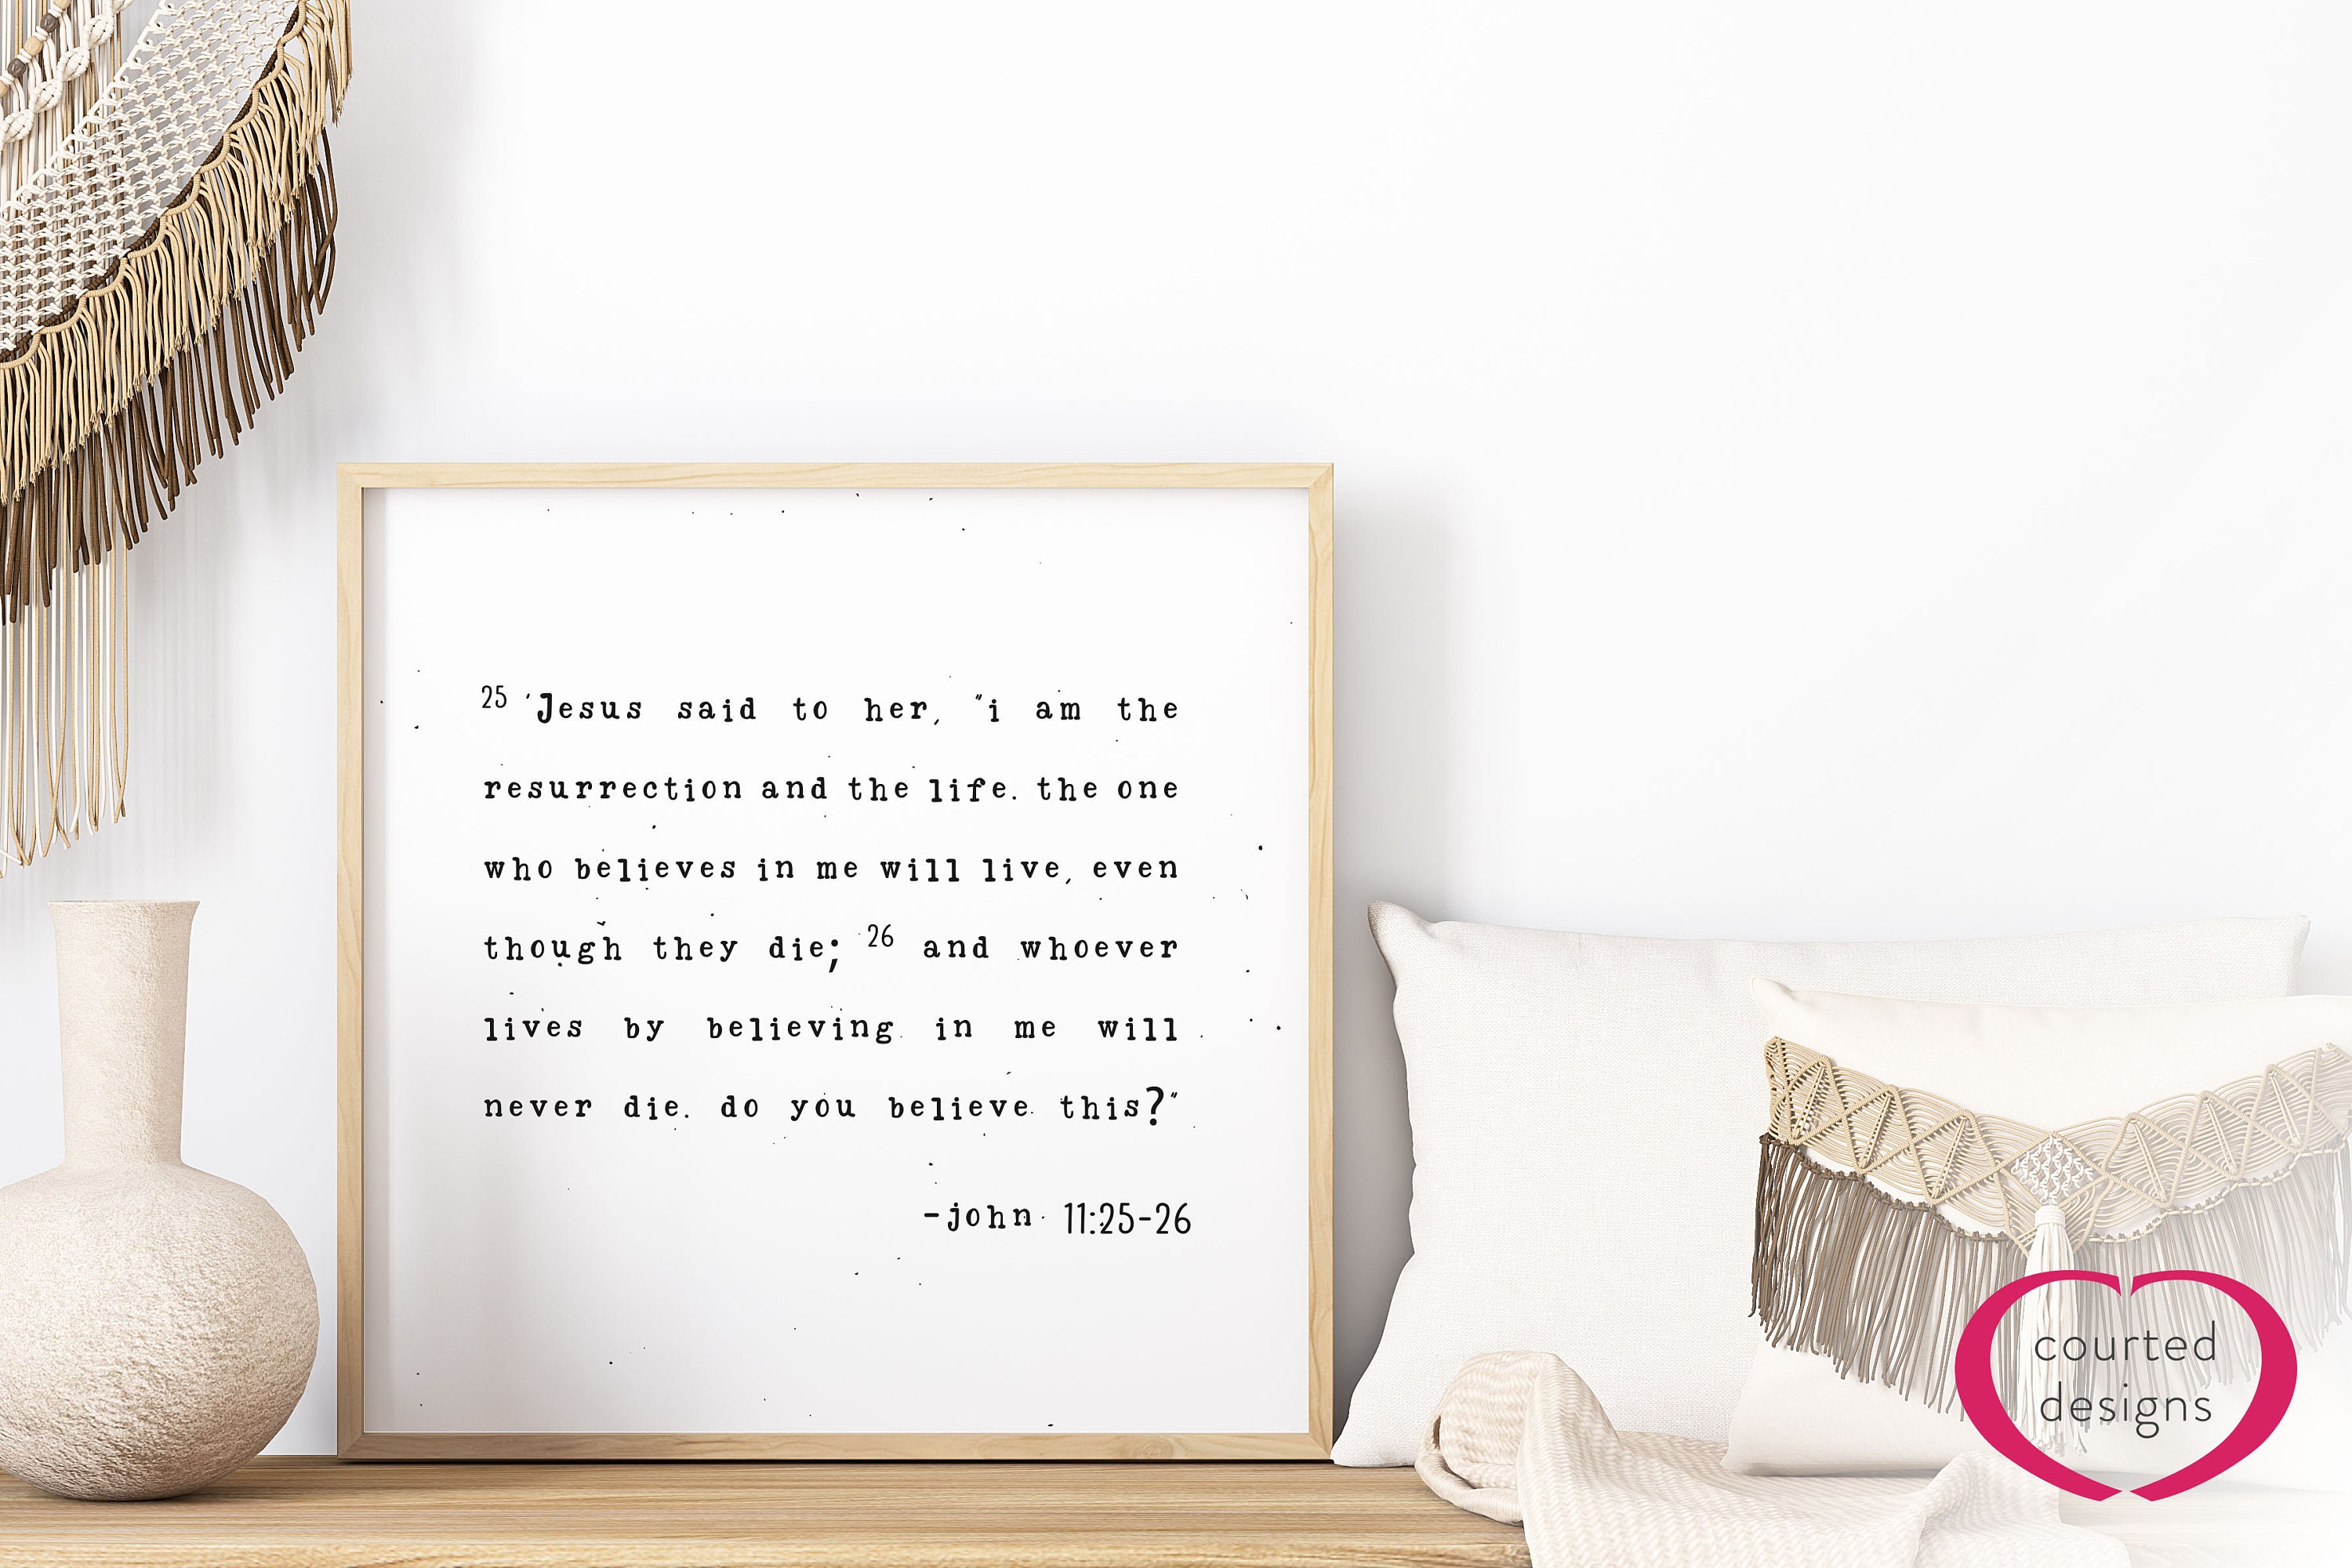 25 'Jesus said to her, "i am the
resurrection and the life. the one
who believes in me will live, even
though they die; 26 and whoever
lives by believing in me will
never die. do you believe this?"
-john 11:25-26
courted
designs